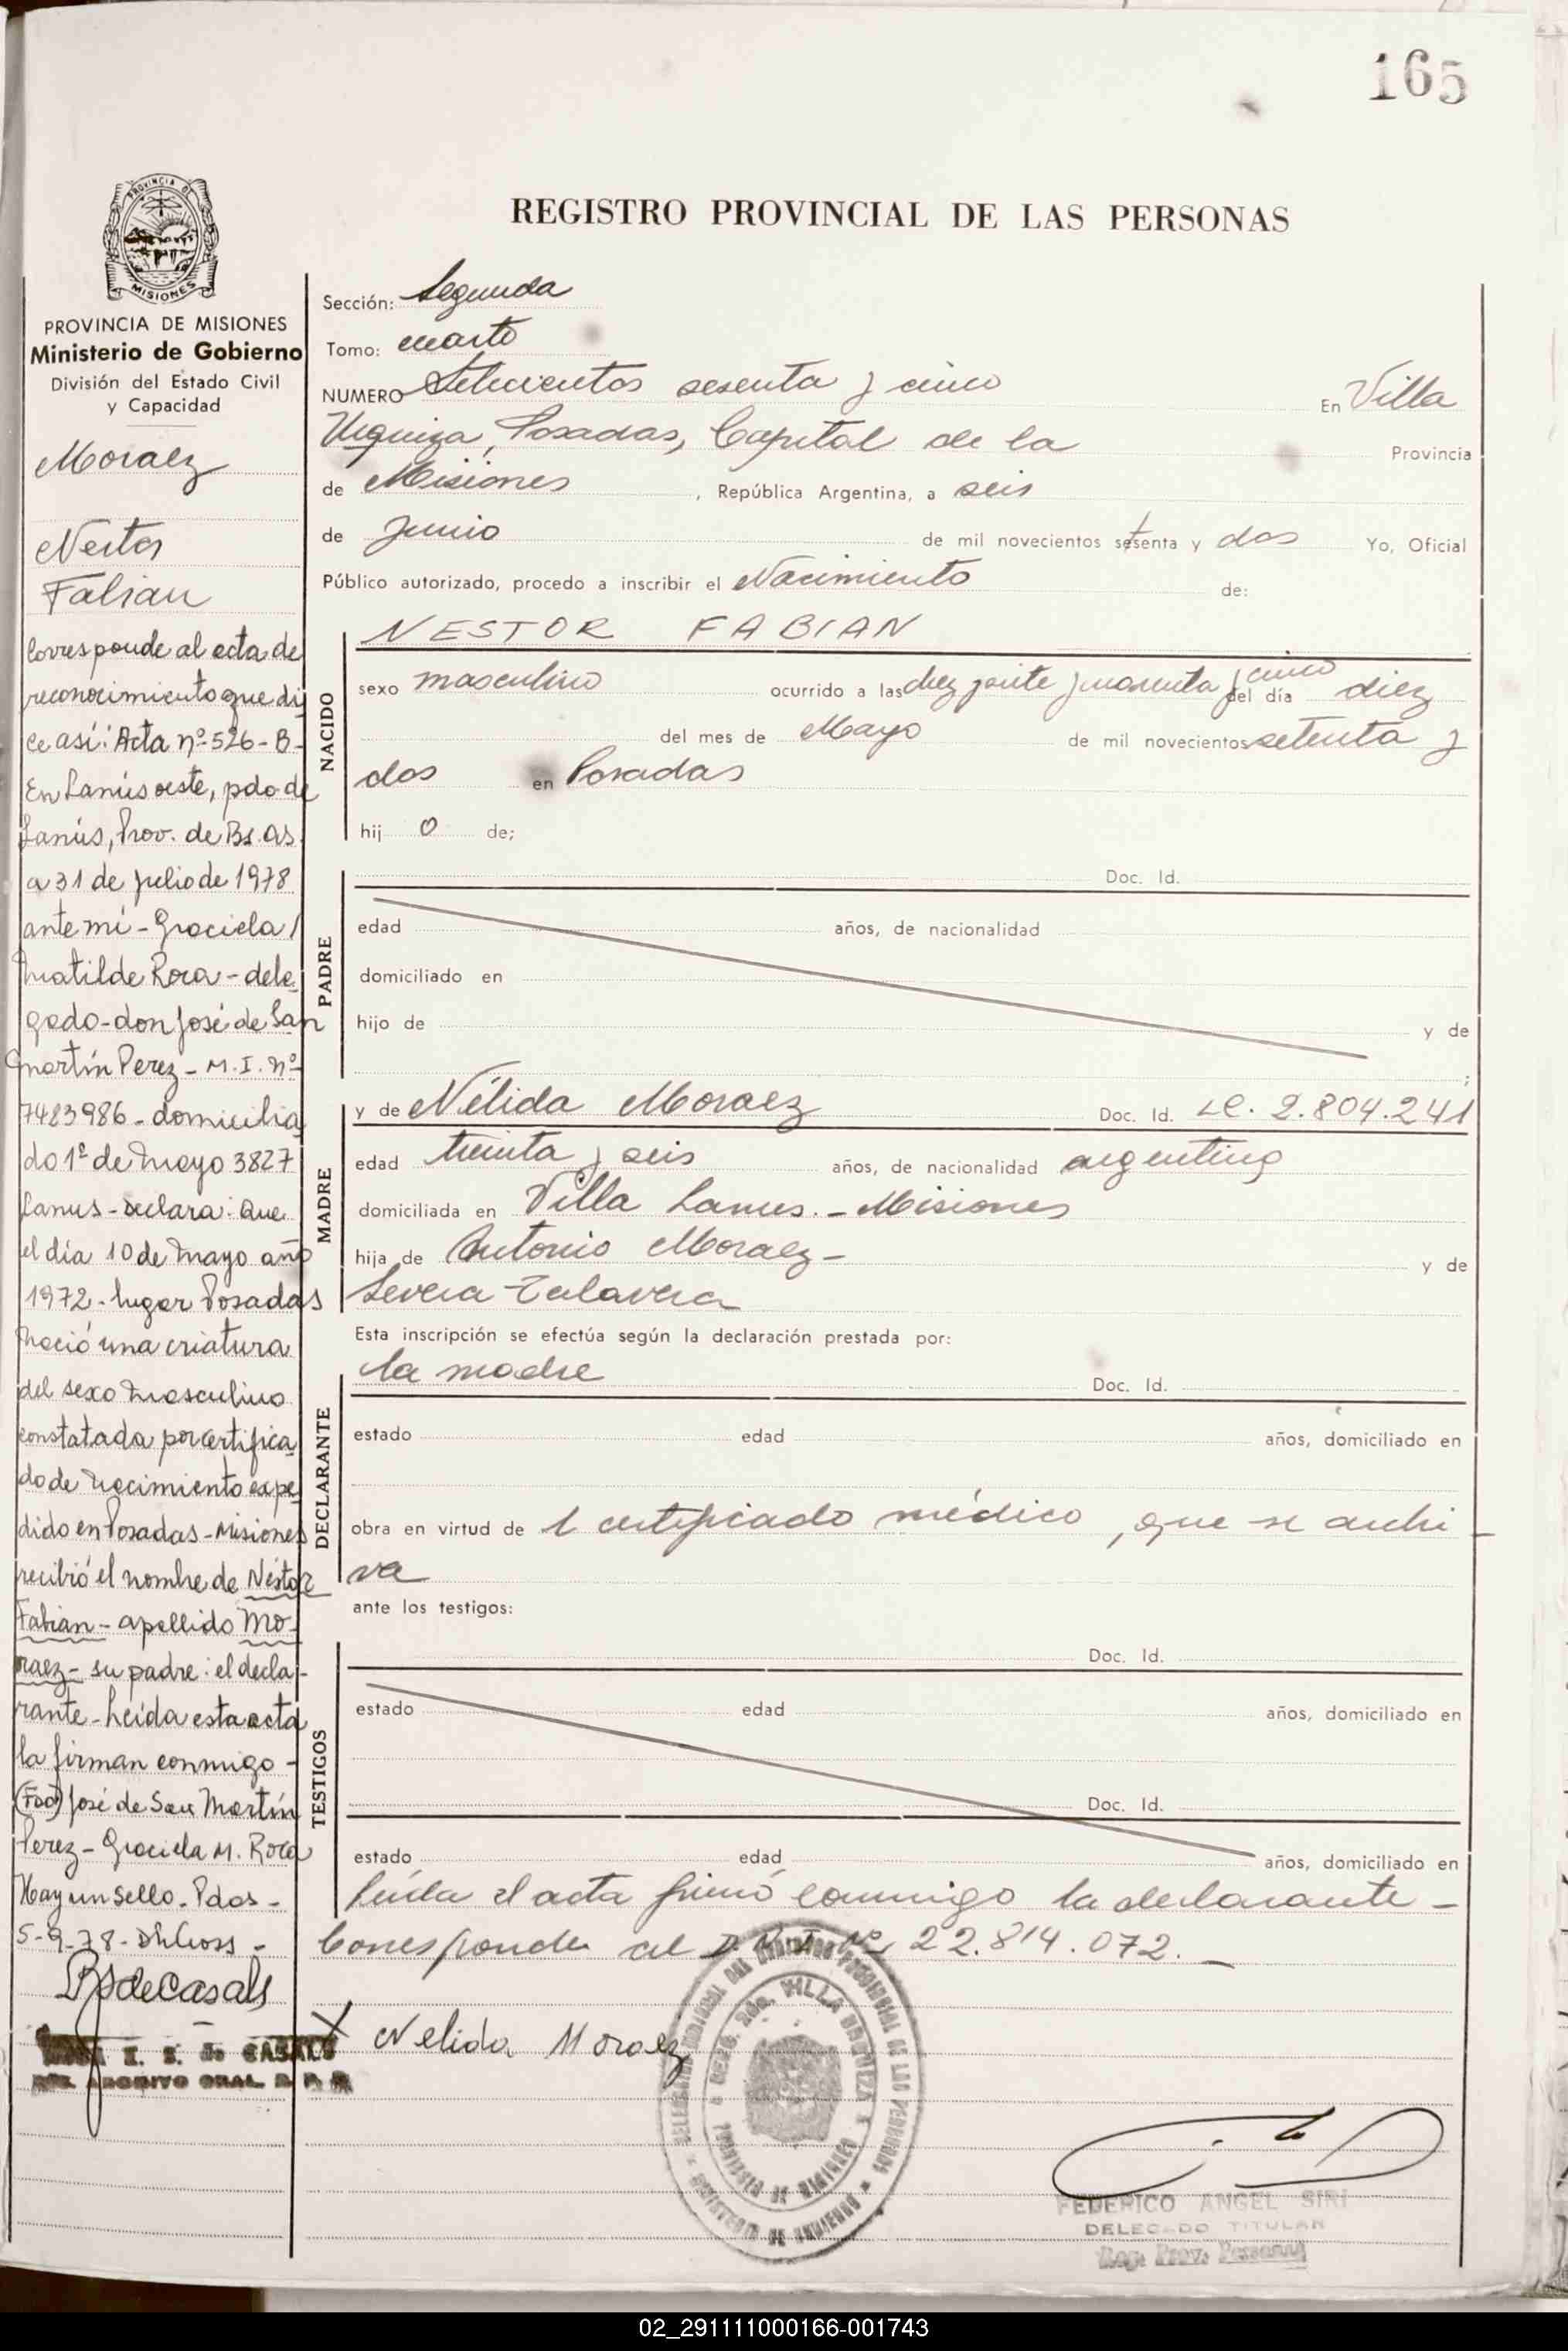 165
REGISTRO PROVINCIAL DE LAS PERSONAS
PROVINCIA DE MISIONES
Ministerio de Gobierno
División del Estado Civil
y Capacidad
Moraez
Nestor
Fabian
Corresponde al acta de
reconocimiento que di
ce así: Acta nº 526-B-
En Lanús oeste, pdo de
Lanús, Prov. de Bs. As.
a 31 de julio de 1978
ante mí - Graciela
Matilde Roca - dele
gado - don José de San
Martín Perez - M.I. nº
7483986 - domicilia
do 1º de Mayo 3827
Lanus - declara: Que
el día 10 de Mayo año
1972 - lugar Posadas
Nació una criatura
del sexo Masculino
constatada por certifica
do de Nacimiento expe
dido en Posadas - Misiones
recibió el nombre de Néstor
Fabian - apellido Mo-
raez - su padre: el decla-
rante - Leída esta acta
la firman conmigo -
(Fdo) José de San Martín
Perez - Graciela M. Roca
Hay un sello. Pdas -
5-9-78 -
de CASALS
Sección: Segunda
Tomo: cuarto
NUMERO Setecientos sesenta y cinco En Villa
Urquiza, Posadas, Capital de la Provincia
de Misiones , República Argentina, a seis
de Junio de mil novecientos setenta y dos Yo, Oficial
Público autorizado, procedo a inscribir el Nacimiento de:
NACIDO
NESTOR FABIAN
sexo masculino ocurrido a las diez y cuarenta y cinco del día diez
del mes de Mayo de mil novecientos setenta y
dos en Posadas
hij o de;
PADRE
Doc. Id.
edad años, de nacionalidad
domiciliado en
hijo de y de
;
MADRE
y de Nélida Moraez Doc. Id. LC. 2.804.241
edad treinta y seis años, de nacionalidad argentina
domiciliada en Villa Lanus. - Misiones
hija de Antonio Moraez - y de
Severa Talavera
Esta inscripción se efectúa según la declaración prestada por:
DECLARANTE
la madre Doc. Id.
estado edad años, domiciliado en
obra en virtud de 1 certificado médico, que se archi
va
ante los testigos:
TESTIGOS
Doc. Id.
estado edad años, domiciliado en
Doc. Id.
estado edad años, domiciliado en
Leída el acta firmó conmigo la declarante -
Corresponde al D.N.I. Nº 22.814.072.
X Nelida Moraez
VILLA URQUIZA
FEDERICO ANGEL SIRI
DELEGADO TITULAR
Reg. Prov. Personas
02_291111000166-001743